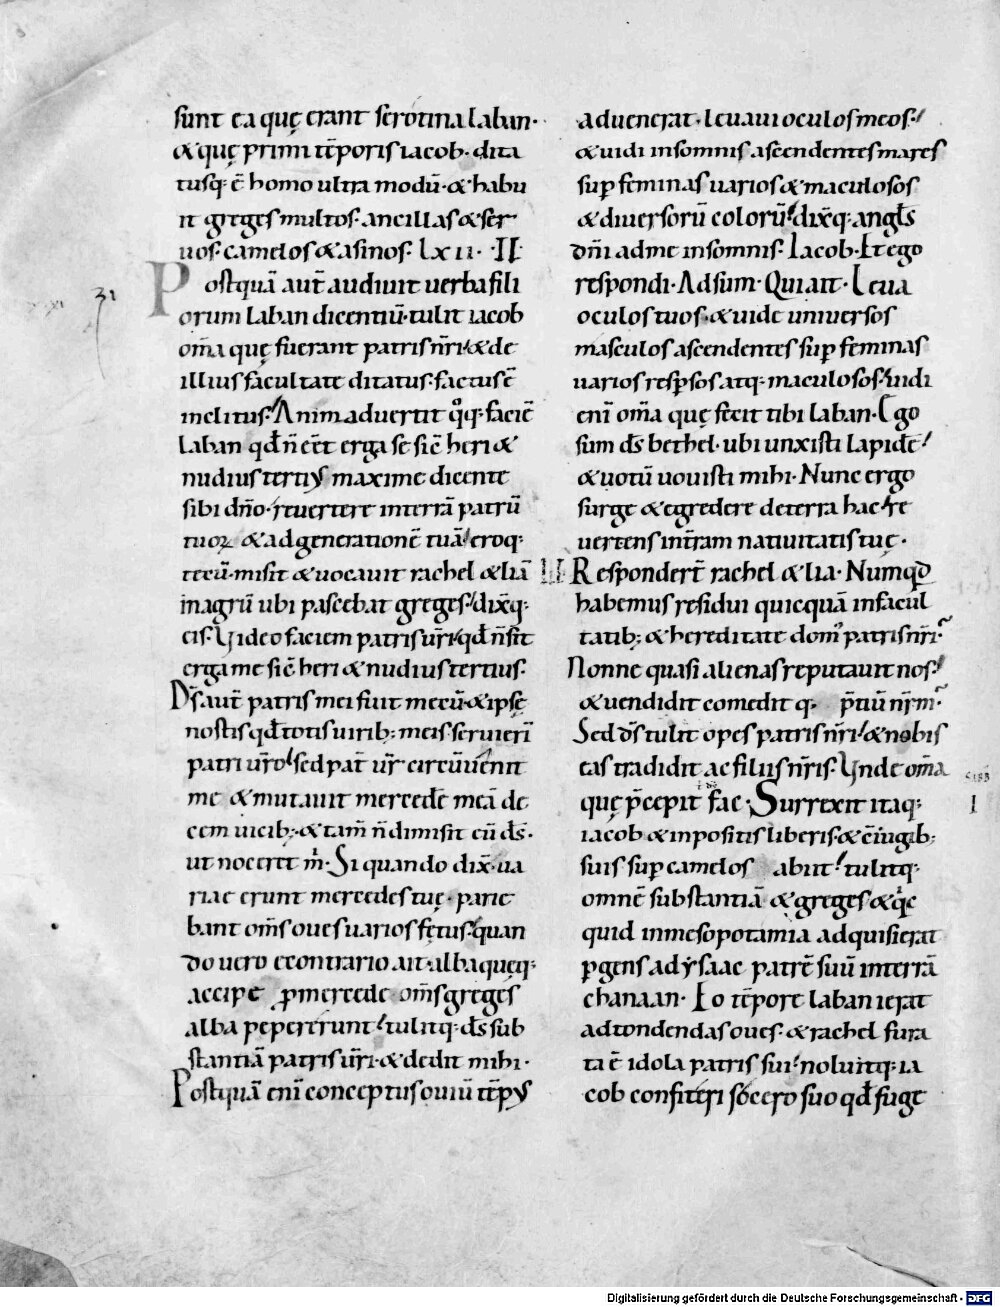 sunt ea quę erant serotina laban·
& quę primi tēporis iacob· dita
tusq; ē homo ultra modū· & habu
it greges multos· ancillas & ser
uos· camelos & asinos· lxii· II·
31
Postquā aut̄ audiuit uerba fili
orum laban dicentiū· tulit iacob
om̄a quę fuerant patris nr̄i· & de
illius facultate ditatus· factus ē
inclitus· Animaduertit qͦq; faciē
laban qđ n̄ eēt erga se sic̄ heri &
nudius tertiꝰ maxime dicente
sibi dn̄o· reuertere in terrā patrū
tuoꝝ & ad generationē tuā· eroq;
tecū· misit & uocauit rachel & liā
in agrū ubi pascebat greges· dix̄q;
eis· Video faciem patris ur̄i· qđ n̄ sit
erga me sic̄ heri & nudius tertius·
Ds̄ aut̄ patris mei fuit mecū· & ipse
nostis qđ totis uirib; meis seruieri
patri ur̄o· sed pat̄ ur̄ circūuenit
me & mutauit mercedē meā de
cem uicib; & tam̄ n̄ dimisit eū ds̄·
ut noceret m̄· Si quando dix̄· ua
riae erunt mercedes tuę· parie
bant om̄s oues uarios fętus· quan
do uero econtrario ait· alba quęq;
accipe ꝓ mercede· om̄s greges
alba pepererunt· tulitq; ds̄ sub
stantiā patris ur̄i· & dedit mihi·
Postquā eni conceptus ouiū tēpꝰ
aduenerat· leuaui oculos meos·
& uidi in somnis ascendentes mares
suꝑ feminas uarios & maculosos
& diuersorū colorū· dix̄q; angls̄
dn̄i ad me in somnis· Iacob· Et ego
respondi· Adsum· Qui ait· Leua
oculos tuos· & uide uniuersos
masculos ascendentes suꝑ feminas
uarios resꝑsos atq; maculosos· uidi
enī om̄a quę fecit tibi laban· Ego
sum ds̄ bethel· ubi unxisti lapidē·
& uotū uouisti mihi· Nunc ergo
surge & egredere de terra hac· re
uertens in tr̄am natiuitatis tuę·
III Responder̄t rachel & lia· Numqđ
habemus residui quicquā in facul
tatib; & hereditate domꝰ patris nr̄i·
Nonne quasi alienas reputauit nos·
& uendidit comedit q; p̄tiū nr̄m·
Sed ds̄ tulit opes patris nr̄i· & nobis
eas tradidit ac filiis nr̄is· Vnde om̄a
quę p̄cepit fac· Surrexit itaq;
I
iacob & inpositis liberis· & c̄iugib;
suis suꝑ camelos abiit· tulitq;
omnē substantiā & greges & qͥc
quid in mesopotamia adquisierat
ꝑgens ad ysaac patrē suū in terrā
chanaan· Eo tēpore laban ierat
ad tondendas oues· & rachel fura
ta ē idola patris sui· noluitq; ia
cob confiteri socero suo qđ fuge
Digitalisierung gefördert durch die Deutsche Forschungsgemeinschaft - DFG